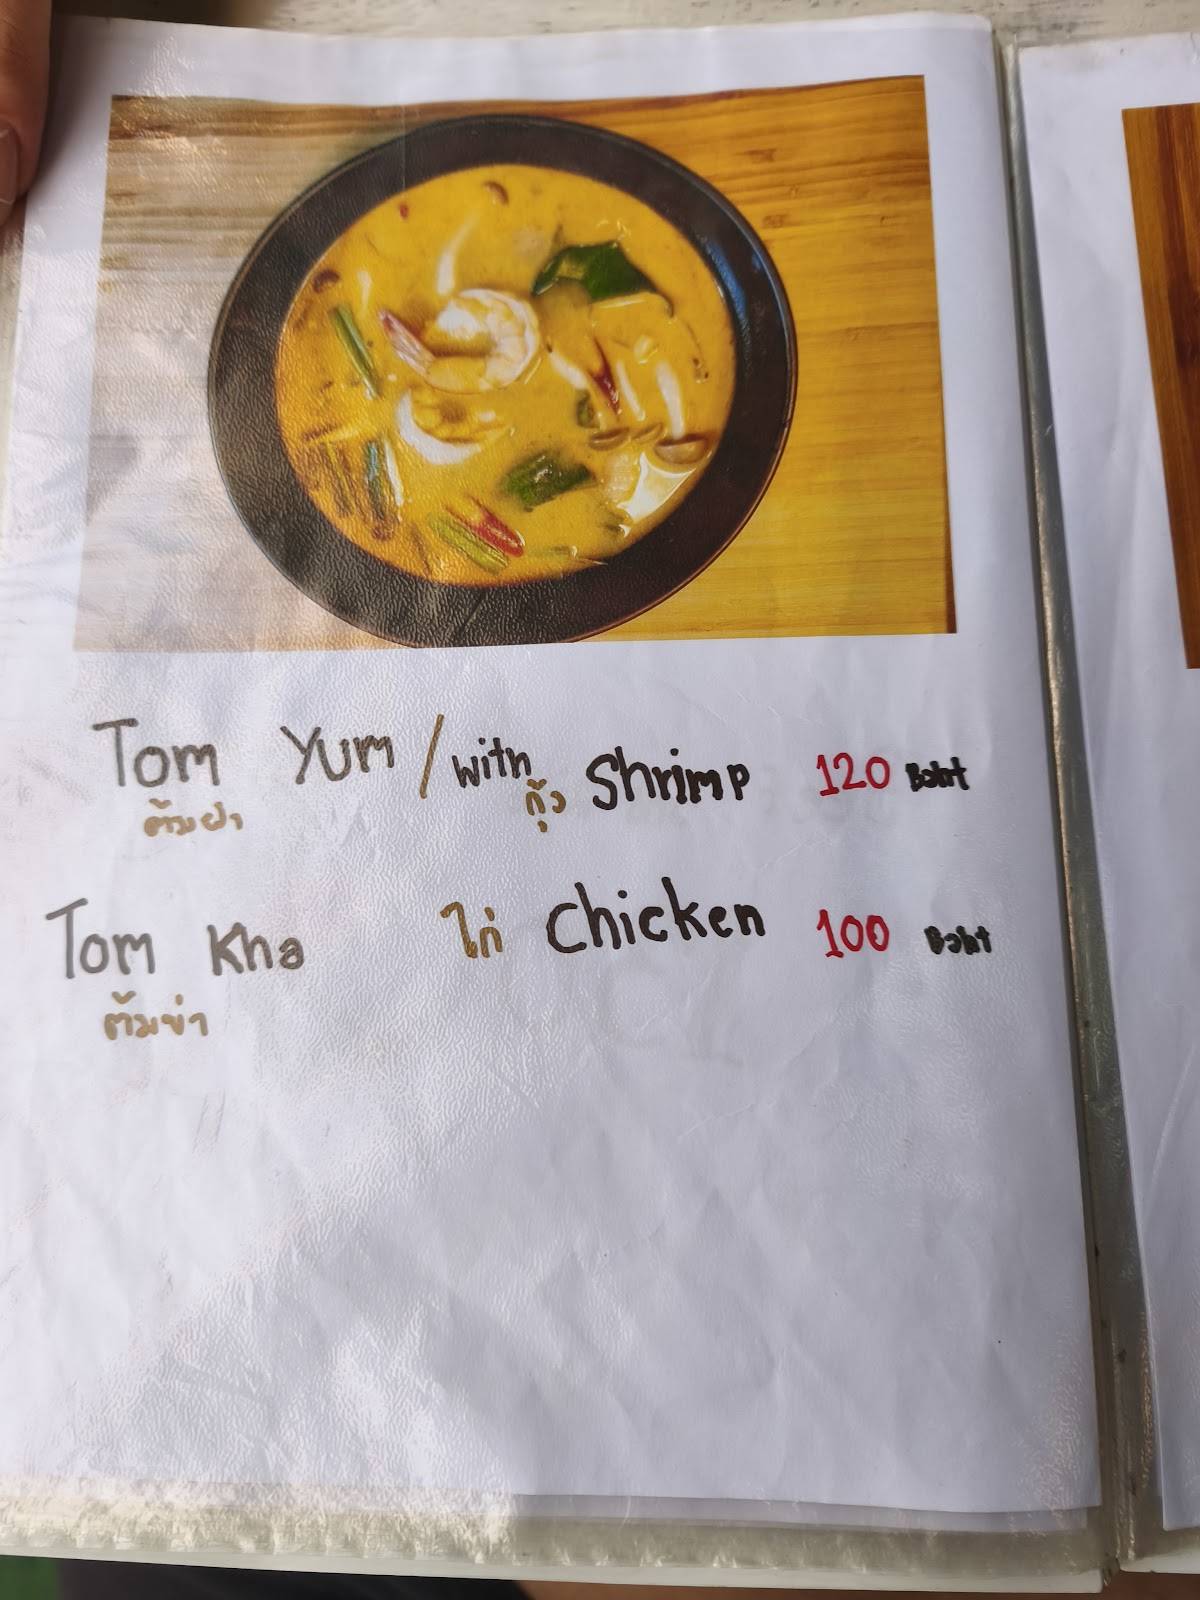 Tom Yum / with กุ้ง Shrimp 120 Baht
ต้มยำ
Tom Kha ไก่ Chicken 100 Baht
ต้มข่า